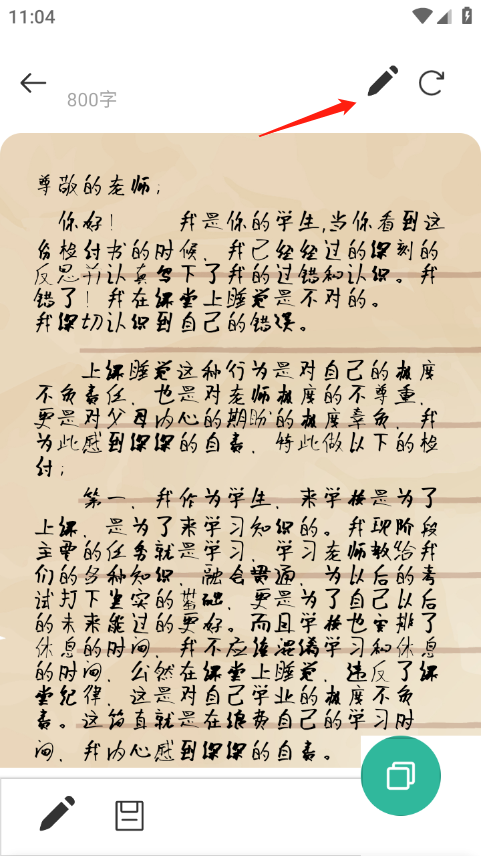 11:04
800字
尊敬的老师；
你好！ 我是你的学生,当你看到这
份检讨书的时候，我已经经过的深刻的
反思并认真写下了我的过错和认识。我
错了！我在课堂上睡觉是不对的。
我深切认识到自己的错误。
上课睡觉这种行为是对自己的极度
不负责任，也是对老师极度的不尊重，
更是对父母内心的期盼的极度辜负，我
为此感到深深的自责，特此做以下的检
讨；
第一，我作为学生，来学校是为了
上课，是为了来学习知识的。我现阶段
主要的任务就是学习，学习老师教给我
们的各种知识，融会贯通，为以后的考
试打下坚实的基础，更是为了自己以后
的未来能过的更好。而且学校也安排了
休息的时间，我不应该混淆学习和休息
的时间，公然在课堂上睡觉，违反了课
堂纪律，这是对自己学业的极度不负
责。这简直就是在浪费自己的学习时
间，我内心感到深深的自责。